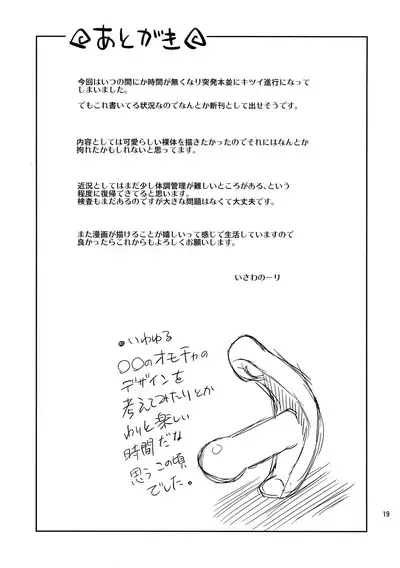 あとがき
今回はいつの間にか時間が無くなり突発本並にキツイ進行になって
しまいました。
でもこれ書いてる状況なのでなんとか新刊として出せそうです。
内容としては可愛らしい裸体を描きたかったのでそれにはなんとか
拘れたかもしれないと思ってます。
近況としてはまだ少し体調管理が難しいところがある、という
程度に復帰できてると思います。
検査もまだあるのですが大きな問題はなくて大丈夫です。
また漫画が描けることが嬉しいって感じで生活していますので
良かったらこれからもよろしくお願いします。
いさわのーり
いわゆる
〇〇のオモチャの
デザインを
考えてみたりとか
わりと楽しい
時間だな
思うこの頃
でした。
19